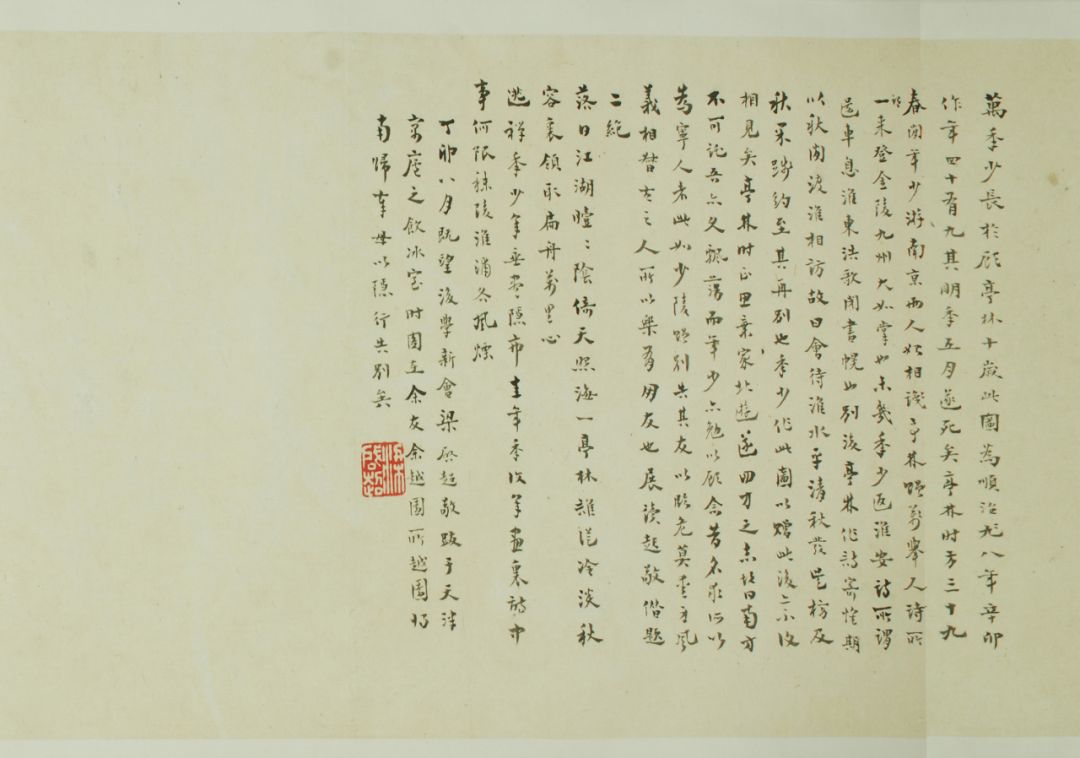 萬季少長於顧亭林十歲此圖為順治九八年辛卯
作年四十有九其明季五月遂死矣亭林時方三十九
春間年少游南京兩人始相識亭林贈萬舉人詩所
謂一來登金陵九州大如掌也未幾季少返淮安詩所謂
過車息淮東浩歌閉書幌也別後亭林作詩寄懷期
以秋間渡淮相訪故曰會待淮水平清秋發吳榜及
秋果踐約至其再別也季少作此圖以贈此後二不復
相見矣亭林時正思棄家北遊遂四方之志故曰南方
不可託吾亦久飄蕩而年少亦勉以顧念昔名承所以
為寧人者此如少陵贈別其友以臨危莫愛身風
義相督古之人所以樂有朋友也展讀起敬偕題
二絕
落日江湖曀曀陰倚天照海一亭林誰從冷淡秋
容裏領取扁舟萬里心
逃禪季少年垂老隱市 年 攷筆畫裏詩中
事何限秣陵淮浦冬風煙
丁卯八月既望後學新會梁啟超敬跋于天津
寓廬之飲冰室時圖在余友余越園所越園將
南歸奉母以隱行共別矣